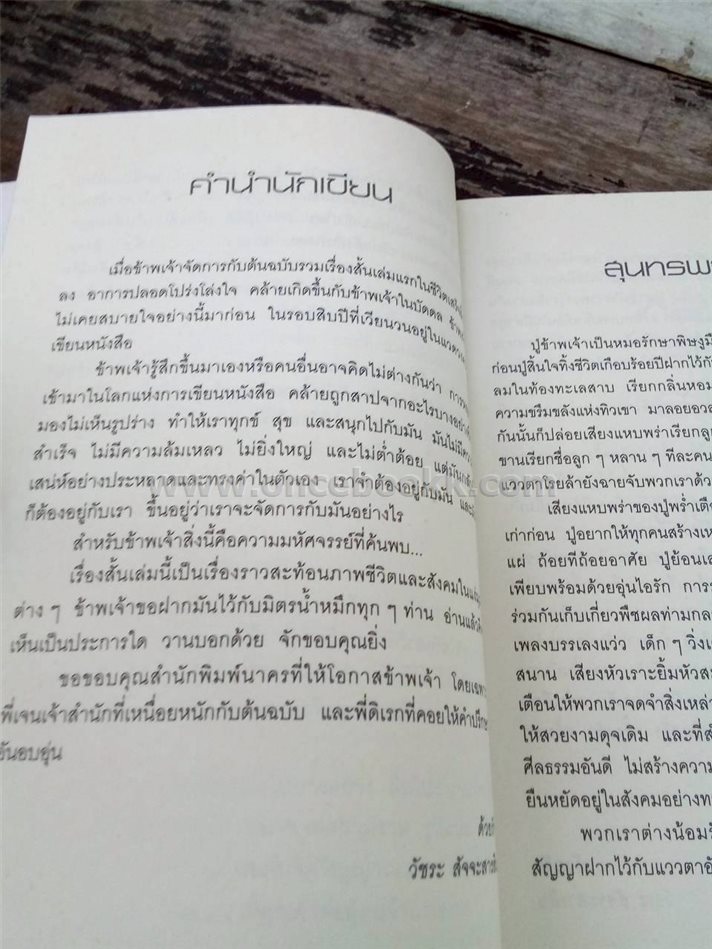 คำนำนักเขียน
เมื่อข้าพเจ้าจัดการกับต้นฉบับรวมเรื่องสั้นเล่มแรกในชีวิต
ลง อาการปลอดโปร่งโล่งใจ คล้ายเกิดขึ้นกับข้าพเจ้าในบัดดล
ไม่เคยสบายใจอย่างนี้มาก่อน ในรอบสิบปีที่เวียนวนอยู่ในแวดวง
เขียนหนังสือ
ข้าพเจ้ารู้สึกขึ้นมาเองหรือคนอื่นอาจคิดไม่ต่างกันว่า
เข้ามาในโลกแห่งการเขียนหนังสือ คล้ายถูกสาปจากอะไรบางอย่าง
มองไม่เห็นรูปร่าง ทำให้เราทุกข์ สุข และสนุกไปกับมัน มันไม่มี
สำเร็จ ไม่มีความล้มเหลว ไม่ยิ่งใหญ่ และไม่ต่ำต้อย แต่มัน
เสน่ห์อย่างประหลาดและทรงค่าในตัวเอง เราจำต้องอยู่กับมัน และ
ก็ต้องอยู่กับเรา ขึ้นอยู่ว่าเราจะจัดการกับมันอย่างไร
สำหรับข้าพเจ้าสิ่งนี้คือความมหัศจรรย์ที่ค้นพบ...
เรื่องสั้นเล่มนี้เป็นเรื่องราวสะท้อนภาพชีวิตและสังคมใน
ต่าง ๆ ข้าพเจ้าขอฝากมันไว้กับมิตรน้ำหมึกทุก ๆ ท่าน อ่านแล้ว
เห็นเป็นประการใด วานบอกด้วย จักขอบคุณยิ่ง
ขอขอบคุณสำนักพิมพ์นาครที่ให้โอกาสข้าพเจ้า โดยเฉพาะ
พี่เจนเจ้าสำนักที่เหนื่อยหนักกับต้นฉบับ และพี่ดิเรกที่คอยให้คำปรึกษา
อันอบอุ่น
วัชระ สัจจะสารสิน
สุนทรพ
ปู่ข้าพเจ้าเป็นหมอรักษาพิษงูมี
ก่อนปู่สิ้นใจทิ้งชีวิตเกือบร้อยปีฝากไว้กั
ลมในท้องทะเลสาบ เรียกกลิ่นหอม
ความขรึมขลังแห่งทิวเขา มาลอยอวล
กันนั้นก็ปล่อยเสียงแหบพร่าเรียกลูก
ขานเรียกชื่อลูก ๆ หลาน ๆ ทีละคน
แววตาโรยล้ายังฉายจับพวกเราด้ว
เสียงแหบพร่าของปู่พร่ำเตือ
เก่าก่อน ปู่อยากให้ทุกคนสร้างเห
แผ่ ถ้อยทีถ้อยอาศัย ปู่ย้อนเล
เพียบพร้อมด้วยอุ่นไอรัก การร
ร่วมกันเก็บเกี่ยวพืชผลท่ามกล
เพลงบรรเลงแว่ว เด็ก ๆ วิ่งเ
สนาน เสียงหัวเราะยิ้มหัวส
เตือนให้พวกเราจดจำสิ่งเหล่
ให้สวยงามดุจเดิม และที่สำ
ศีลธรรมอันดี ไม่สร้างความ
ยืนหยัดอยู่ในสังคมอย่างท
พวกเราต่างน้อมรั
สัญญาฝากไว้กับแววตาอั